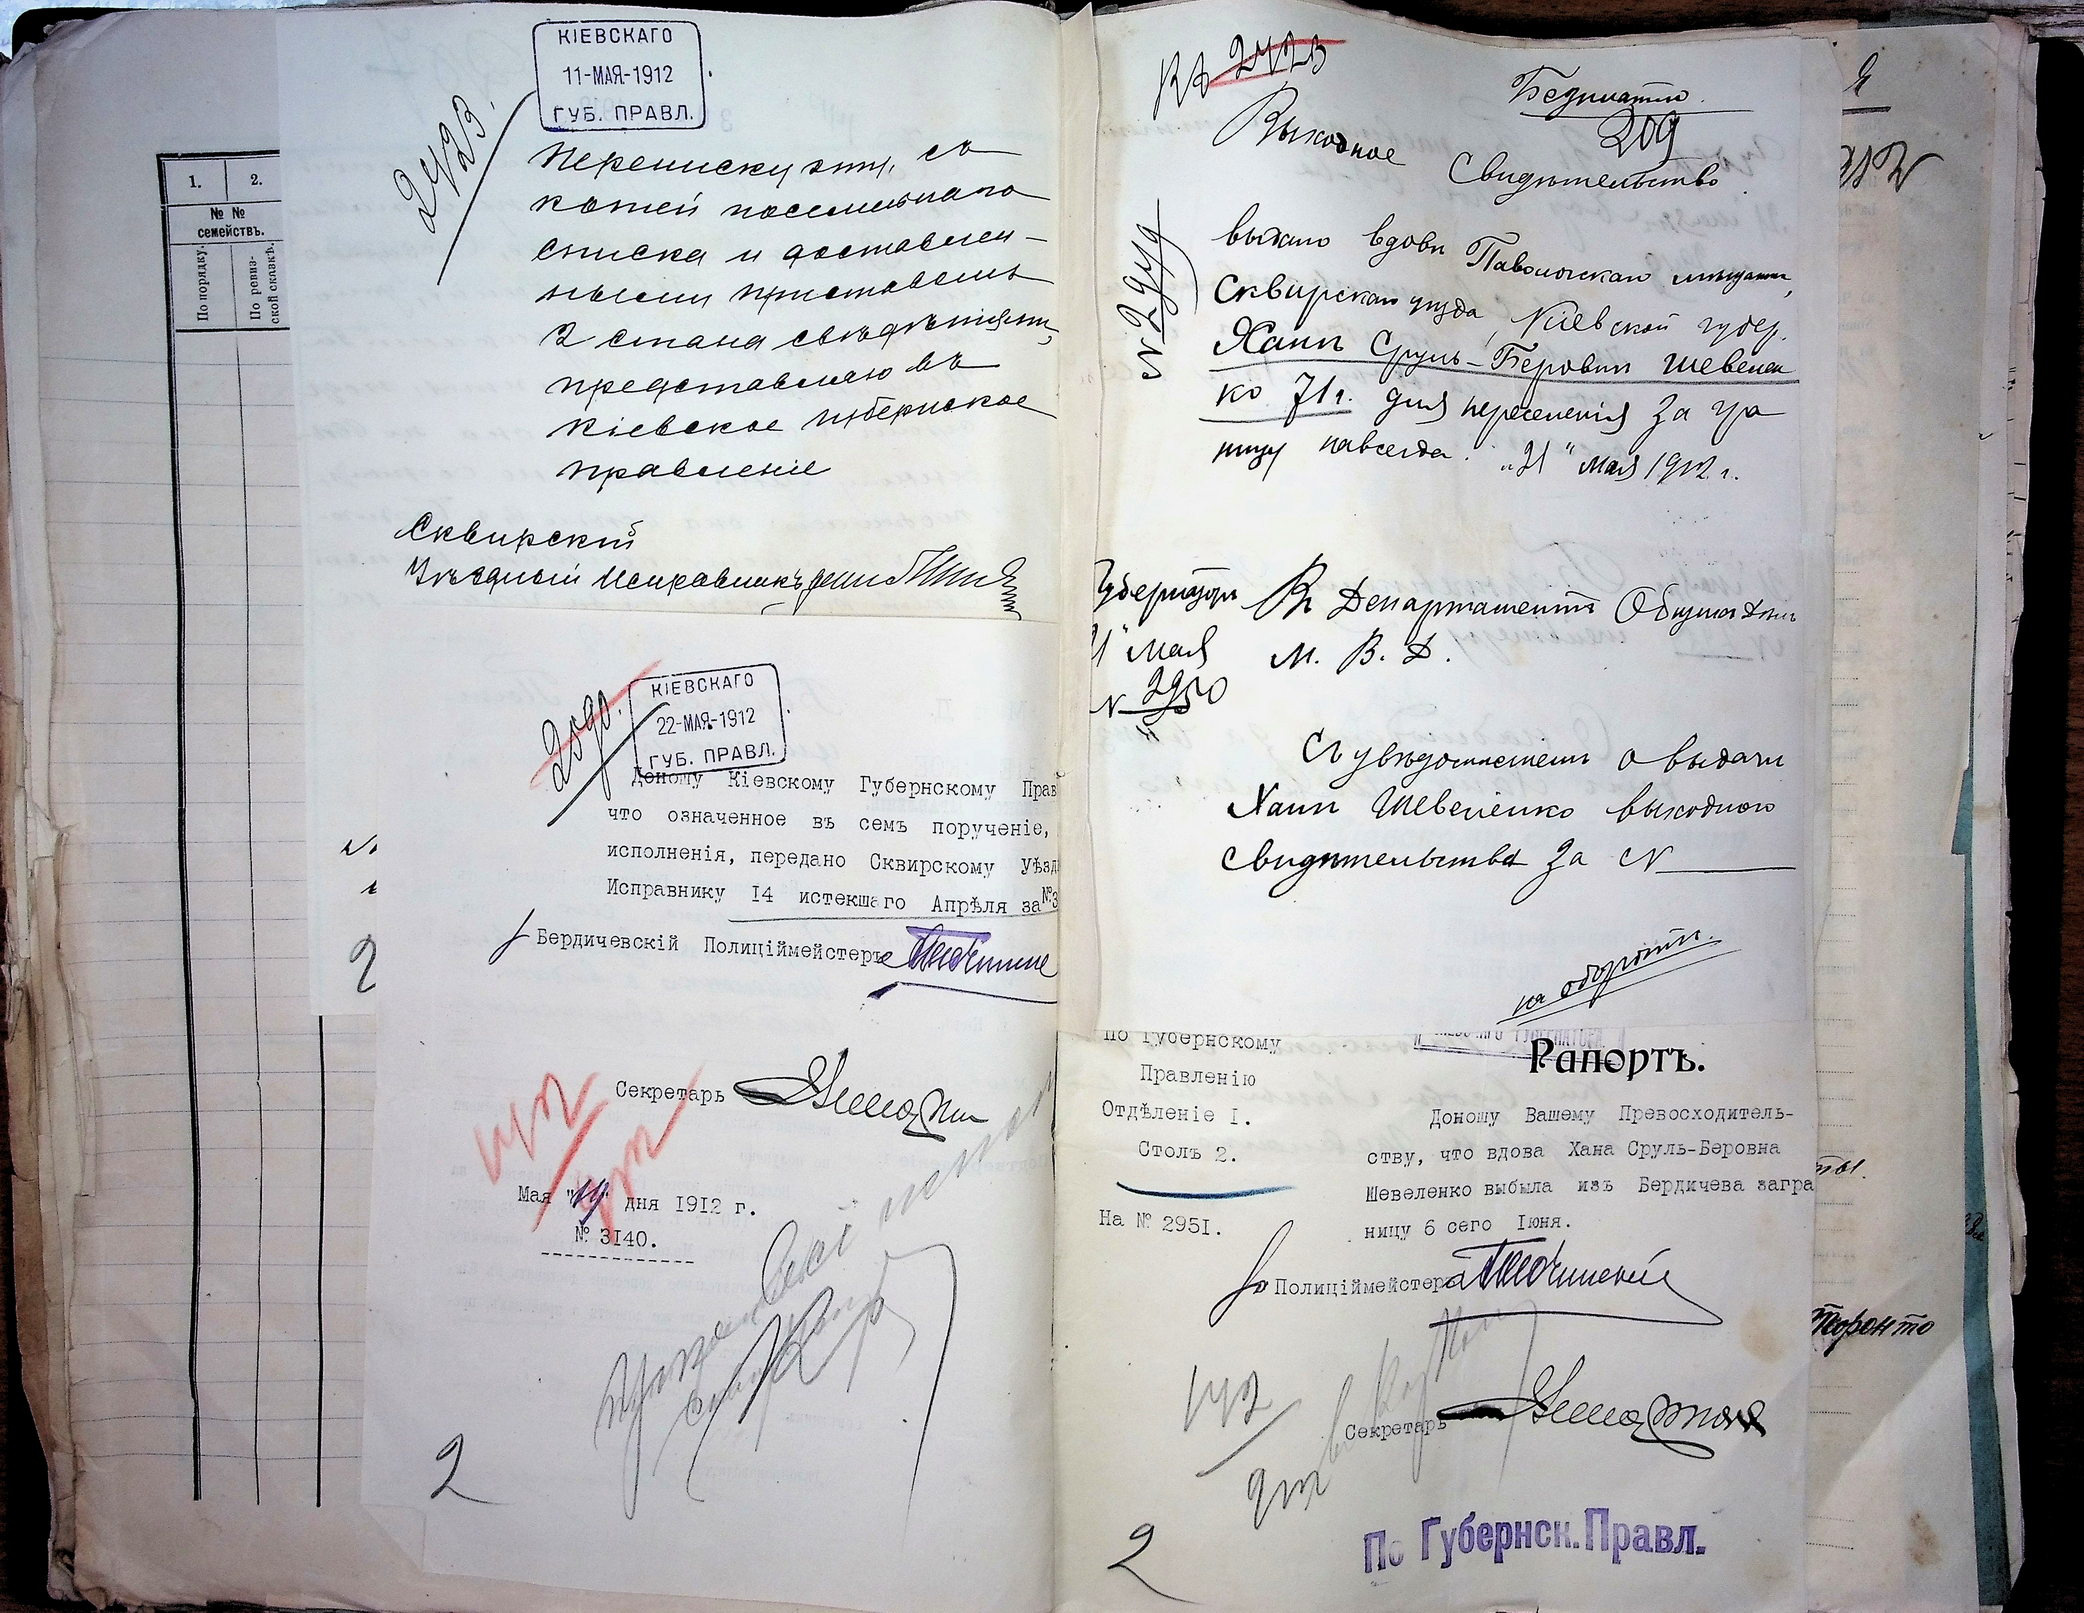 1.
2.
№ №
семействъ.
По порядку.
По ревиз-
ской сказкѣ.
КІЕВСКАГО
11-МАЯ-1912
ГУБ. ПРАВЛ.
2423.
Переписку эту, съ
копіей посемейнаго
списка и доставлен-
ными приставомъ
2 стана свѣдѣніями,
представляю въ
Кіевское Губернское
Правленіе
Сквирскій
Уѣздный Исправникъ
КІЕВСКАГО
22-МАЯ-1912
ГУБ. ПРАВЛ.
Доношу Кіевскому Губернскому Прав
что означенное въ семъ порученіе,
исполненія, передано Сквирскому Уѣзд
Исправнику 14 истекшаго Апрѣля за №3
Бердичевскій Полиціймейстеръ
Секретарь
Мая "19" дня 1912 г.
№ 3140.
2
2
Къ 2423
Безплатно.
209
Выходное Свидѣтельство.
№ 2949
выдано вдовѣ Паволочской мѣщанкѣ,
Сквирскаго уѣзда, Кіевской губер.
Ханѣ Сруль-Беровнѣ Шевелен
ко 71 г. для переселенія за гра
ницу навсегда. „21" мая 1912 г.
Губернаторъ
21" мая
№ 2950
Въ Департаментъ Общихъ Дѣлъ
М. В. Д.
Съ увѣдомленіемъ о выдачѣ
Ханѣ Шевеленко выходного
свидѣтельства за №
на оборотѣ.
По Губернскому
Правленію
Отдѣленіе I.
Столъ 2.
На № 2951.
Рапортъ.
Доношу Вашему Превосходитель-
ству, что вдова Хана Сруль-Беровна
Шевеленко выбыла изъ Бердичева загра
ницу 6 сего Іюня.
Полиціймейстера
Секретарь
2
По Губернск. Правл.
Торонто